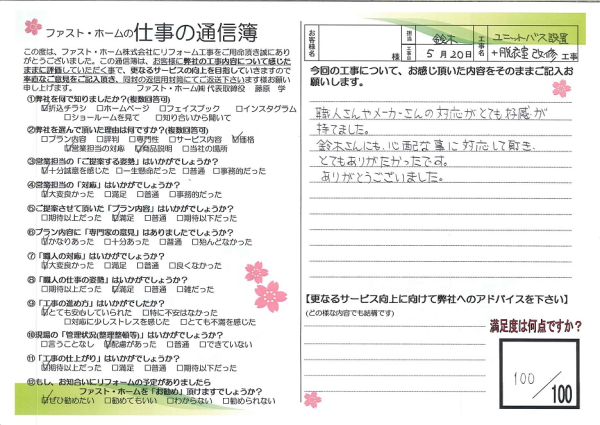 ファスト・ホームの仕事の通信簿
この度は、ファスト・ホーム株式会社にリフォーム工事をご用命頂き誠にあり
がとうございました。この通信簿は、お客様に弊社の工事内容について感じた
ままに評価していただく事で、更なるサービスの向上を目指していきますので
率直なご意見をご記入頂き、同封の返信封筒にてご返送下さいます様お願い
申し上げます。 ファスト・ホーム㈱ 代表取締役 藤原 学
①弊社を何で知りましたか?(複数回答可)
☑折込チラシ □ホームページ □フェイスブック □インスタグラム
□ショールームを見て □知り合いから聞いて
②弊社を選んで頂いた理由は何ですか?(複数回答可)
□プラン内容 □評判 □専門性 □サービス内容 ☑価格
☑営業担当の対応 ☑商品説明 □当社の場所
③営業担当の「ご提案する姿勢」はいかがでしょうか?
☑十分誠意を感じた □一生懸命だった □普通 □事務的だった
④営業担当の「対応」はいかがでしょうか?
☑大変良かった □満足 □普通 □事務的だった
⑤ご提案させて頂いた「プラン内容」はいかがでしょうか?
□期待以上だった ☑満足 □普通 □期待以下だった
⑥プラン内容に「専門家の意見」はありましたでしょうか?
☑かなりあった □十分あった □普通 □殆んどなかった
⑦「職人の対応」はいかがでしょうか?
☑大変良かった □満足 □普通 □良くなかった
⑧「職人の仕事の姿勢」はいかがでしょうか?
☑期待以上だった □満足 □普通 □雑だった
⑨「工事の進め方」はいかがでしたか?
☑とても安心していられた □特に不安はなかった
□対応に少しストレスを感じた □とても不満を感じた
⑩現場の「管理状況(整理整頓等)」はいかがでしょうか?
□言うことなし ☑配慮があった □普通 □できていない
⑪「工事の仕上がり」はいかがでしょうか?
☑期待以上だった □満足 □普通 □期待以下だった
⑫もし、お知合いにリフォームの予定がありましたら
ファスト・ホームを「お勧め」頂けますでしょうか?
☑ぜひ勧めたい □勧めてもいい □わからない □勧められない
お客様名 様 担当 鈴木 工事日 5月20日 工事名 ユニットバス設置
+脱衣室改修 工事
今回の工事について、お感じ頂いた内容をそのままご記入お
願いします。
職人さんやメーカーさんの対応がとても好感が
持てました。
鈴木さんにも、心配な事に対応して頂き、
とてもありがたかったです。
ありがとうございました。
【更なるサービス向上に向けて弊社へのアドバイスを下さい】
(どの様な内容でも結構です)
満足度は何点ですか?
100/100